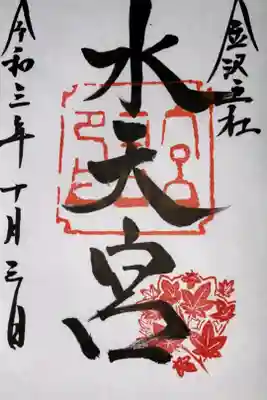 金沢五社
水天宮
令和三年十月三日